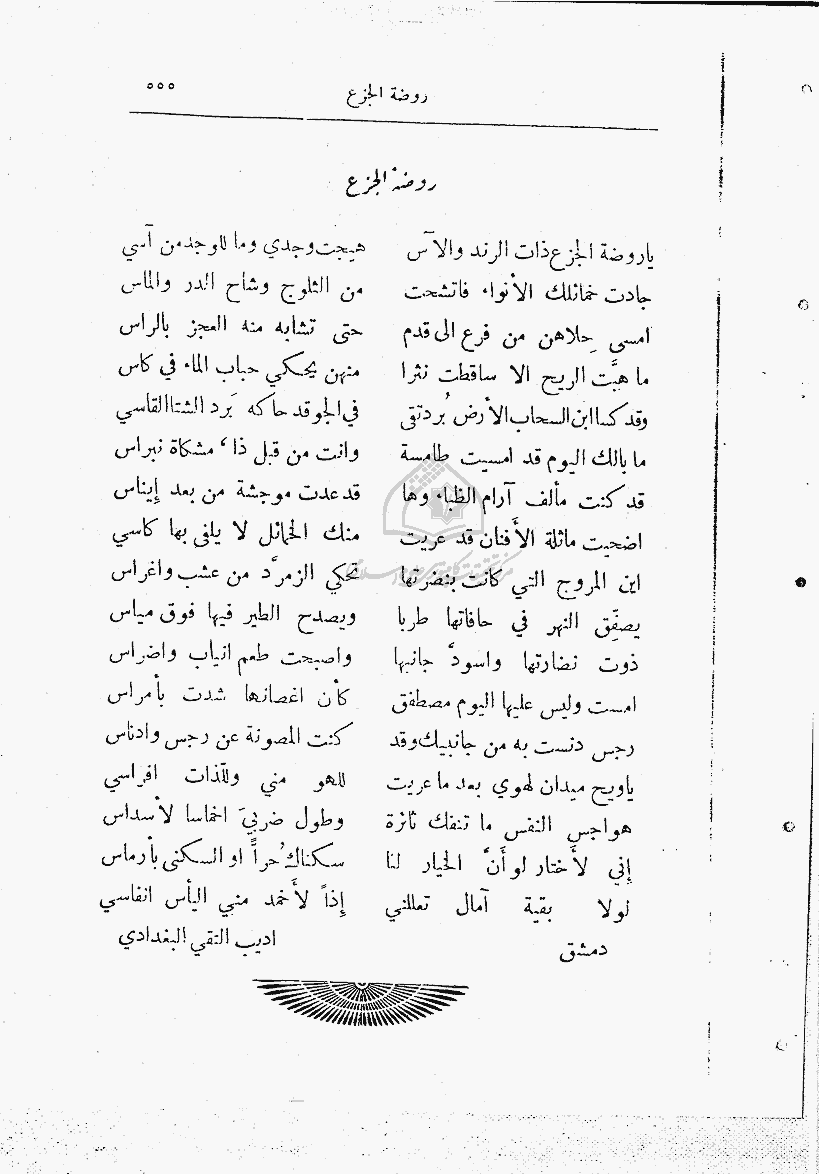 روضة الجزع ٥٥٥
روضة الجزع
ياروضة الجزع ذات الرند والآس هيجت وجدي وما للوجد من آسي
جادت خمائلك الأنواء فاتشحت من الثلوج وشاح الدر والماس
امسى حِلاهن من فرع الى قدم حتى تشابه منه العجز بالراس
ما هبَّت الريح الا ساقطت نثرا منهن يحكي حباب الماء في كاس
وقد كسا ابن السحاب الأرض بُردتقى في الجو قد حاكه بَرد الشتا القاسي
ما بالك اليوم قد امسيت طامسة وانت من قبل ذا، مشكاة نبراس
قد كنت مألف آرام الظباء وها قد عدت موحشة من بعد إيناس
اضحيت ماثلة الأفنان قد عريت منك الخمائل لا يلفى بها كاسي
اين المروج التي كانت بنضرتها تحكي الزمرَّد من عشب واغراس
يصفِّق النهر في حافاتها طربا ويصدح الطير فيها فوق مياس
ذوت نضارتها واسودَّ جانبها واصبحت طعم انياب واضراس
امست وليس عليها اليوم مصطفق كأن اغصانها شدت بأمراس
رجس دنست به من جانبيك وقد كنت المصونة عن رجس وادناس
ياويح ميدان لهوي بعد ما عريت للهو مني وللذات افراسي
هواجس النفس ما تنفك ثائرة وطول ضربيَ اخماسا لأسداس
إني لأختار لو أنَّ الخيار لنا سكناك حراً او السكنى بأرماس
لولا بقية آمال تعللني إذاً لأخمد مني اليأس انفاسي
دمشق اديب التقي البغدادي